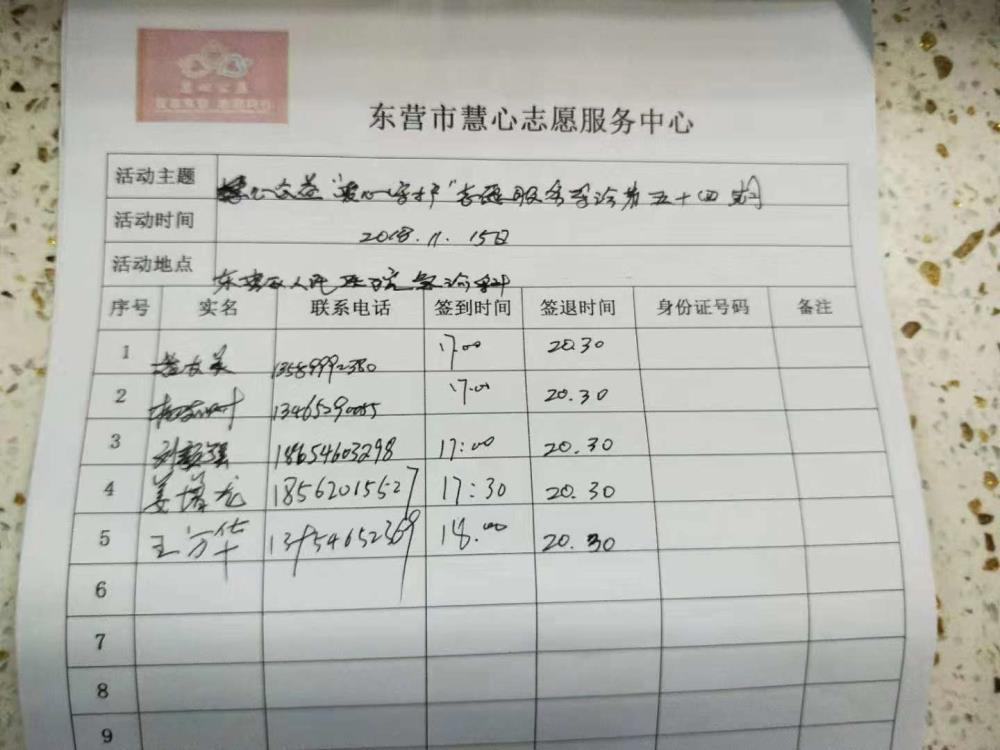 慧心公益
东营市慧心志愿服务中心
活动主题 慧心公益"爱心守护"志愿服务导诊第五十四期
活动时间 2018.11.15日
活动地点 东营市人民医院急诊科
序号 实名 联系电话 签到时间 签退时间 身份证号码 备注
1 17:00 20.30
2 17:00 20.30
3 18654603298 17:00 20.30
4 姜增龙 18562015527 17:30 20.30
5 王方华 18.00 20.30
6
7
8
9